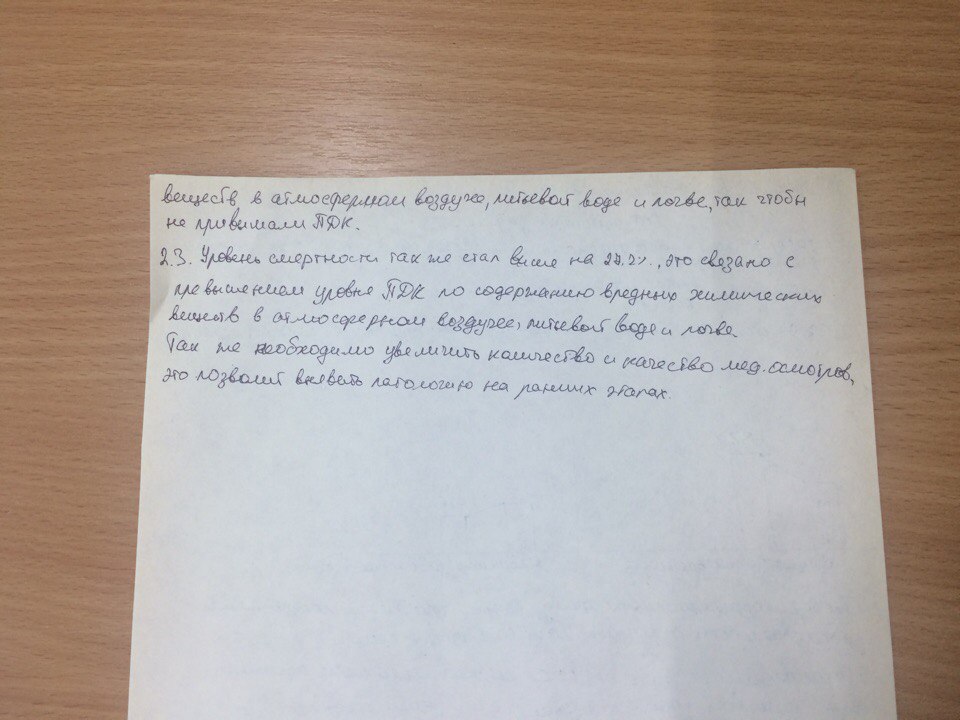 веществ в атмосферном воздухе, питьевой воде и почве, так чтобы
не привышали ПДК.
2.3. Уровень смертности так же стал выше на 27.2%, это связано с
превышением уровня ПДК по содержанию вредных химических
веществ в атмосферном воздухе, питьевой воде и почве.
Так же необходимо увеличить количество и качество мед. осмотров,
это позволит выявить патологию на ранних этапах.